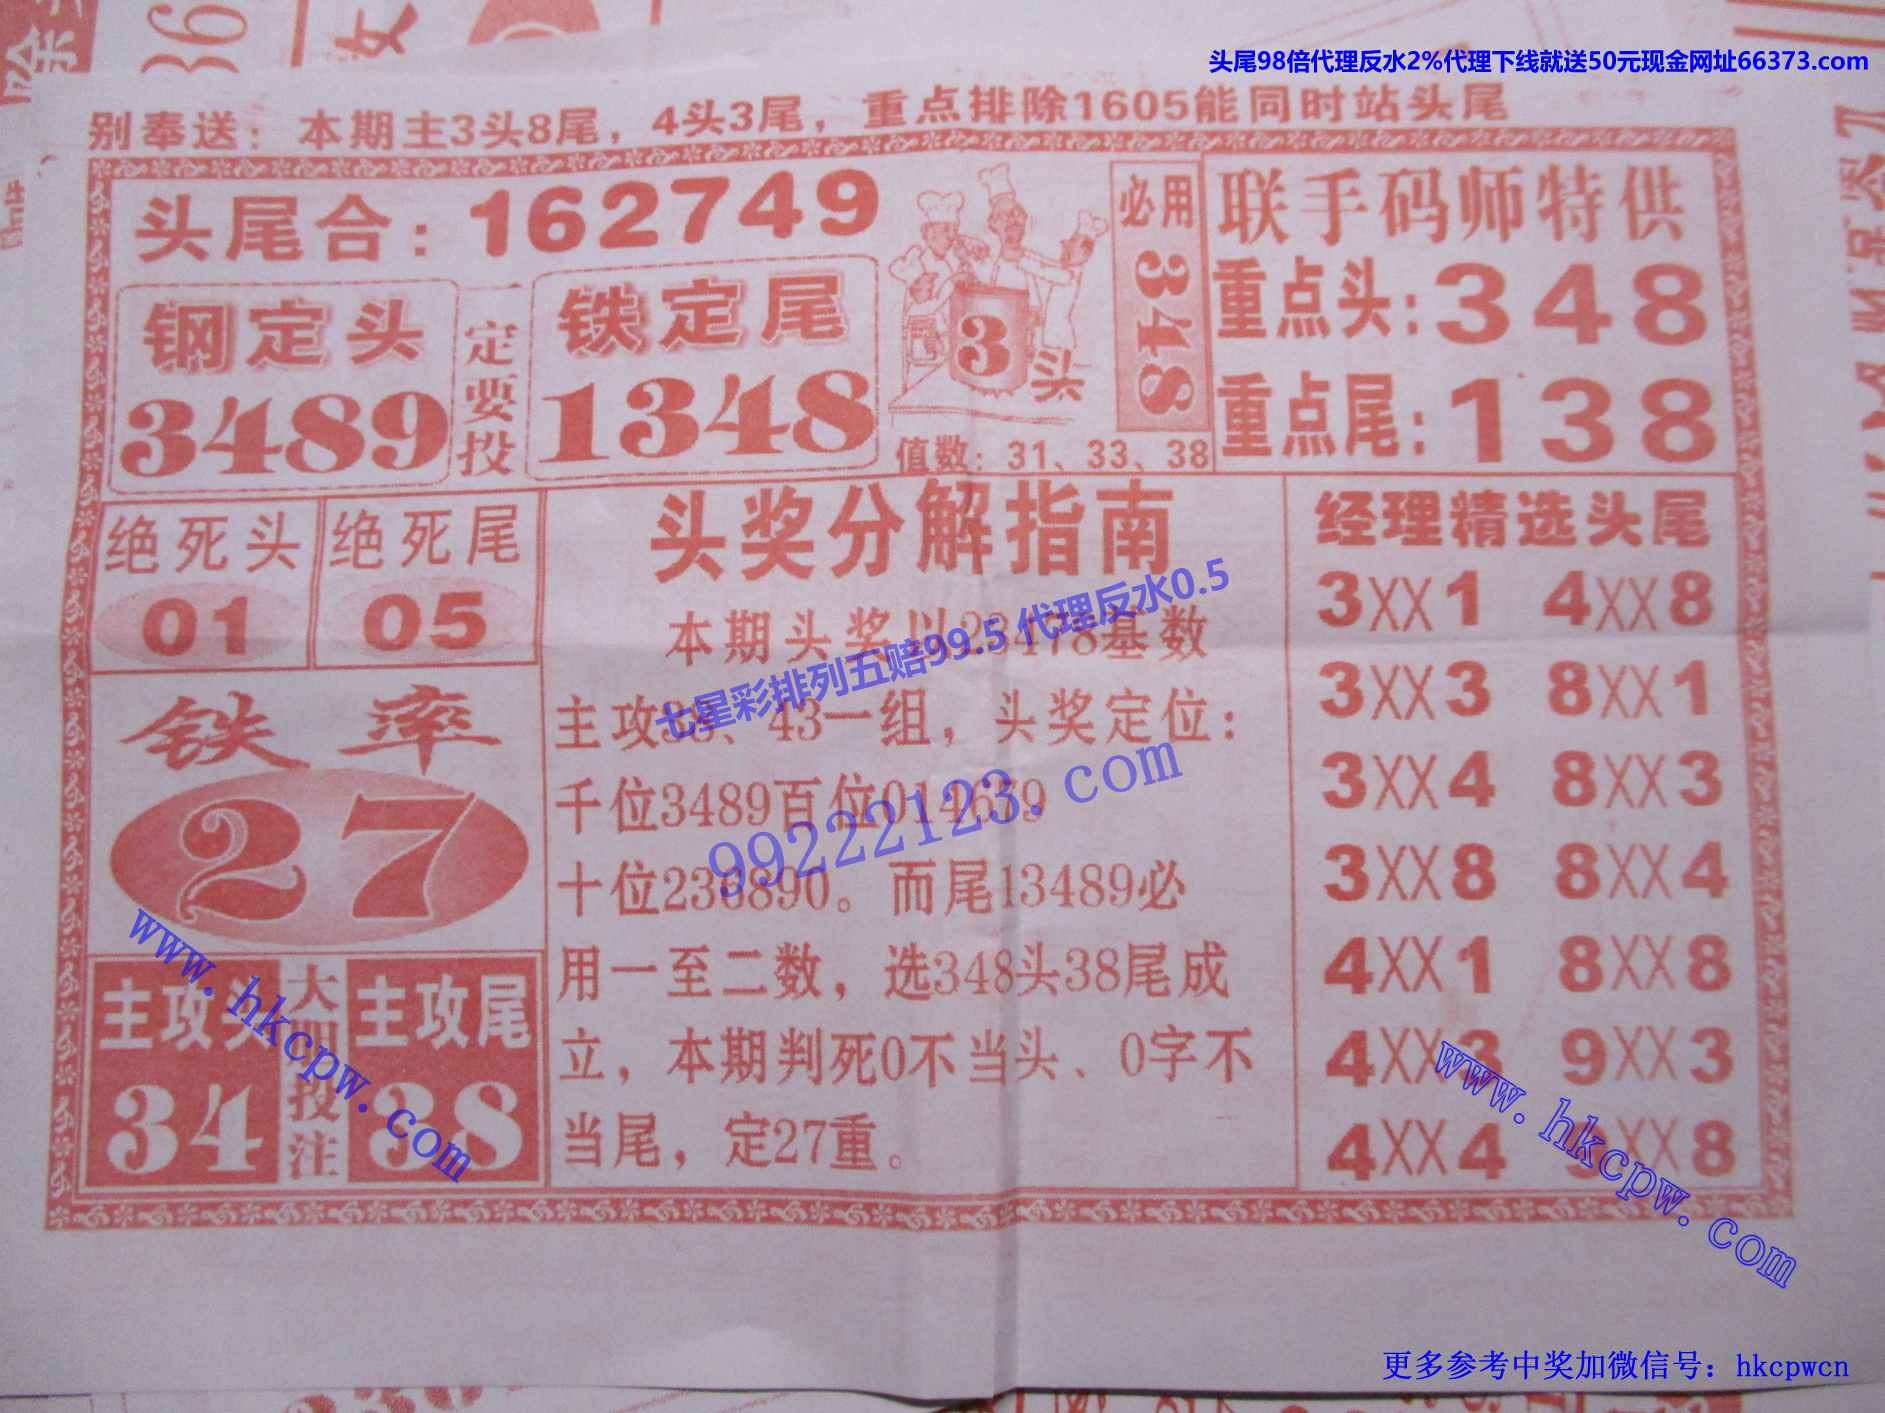 头尾98倍代理反水2%代理下线就送50元现金网址66373.com
别奉送：本期主3头8尾，4头3尾，重点排除1605能同时站头尾
头尾合：162749
钢定头
3489
一定要投
铁定尾
1348
3头
必用
348
值数：31、33、38
联手码师特供
重点头：348
重点尾：138
绝死头
01
绝死尾
05
铁率
27
主攻头
34
大投注
主攻尾
38
头奖分解指南
本期头奖以23478基数
主攻38、43一组，头奖定位：
千位3489百位014679
十位236890。而尾13489必
用一至二数，选348头38尾成
立，本期判死0不当头、0字不
当尾，定27重。
经理精选头尾
3XX1 4XX8
3XX3 8XX1
3XX4 8XX3
3XX8 8XX4
4XX1 8XX8
4XX3 9XX3
4XX4 9XX8
七星彩排列五赔99.5 代理反水0.5
99222123.com
www.hkcpw.com
www.hkcpw.com
更多参考中奖加微信号：hkcpwcn